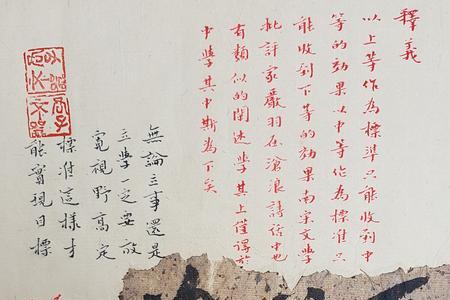 釋義
以上等作為標準只能收到中
等的效果以中等作為標準只
能收到下等的效果南宋文學
批評家嚴羽在滄浪詩話中也
有類似的闡述學其上僅得於
中學其中斯為下矣
無論立事還是
立學一定要放
寬視野高定
標准這樣才
能實現目標